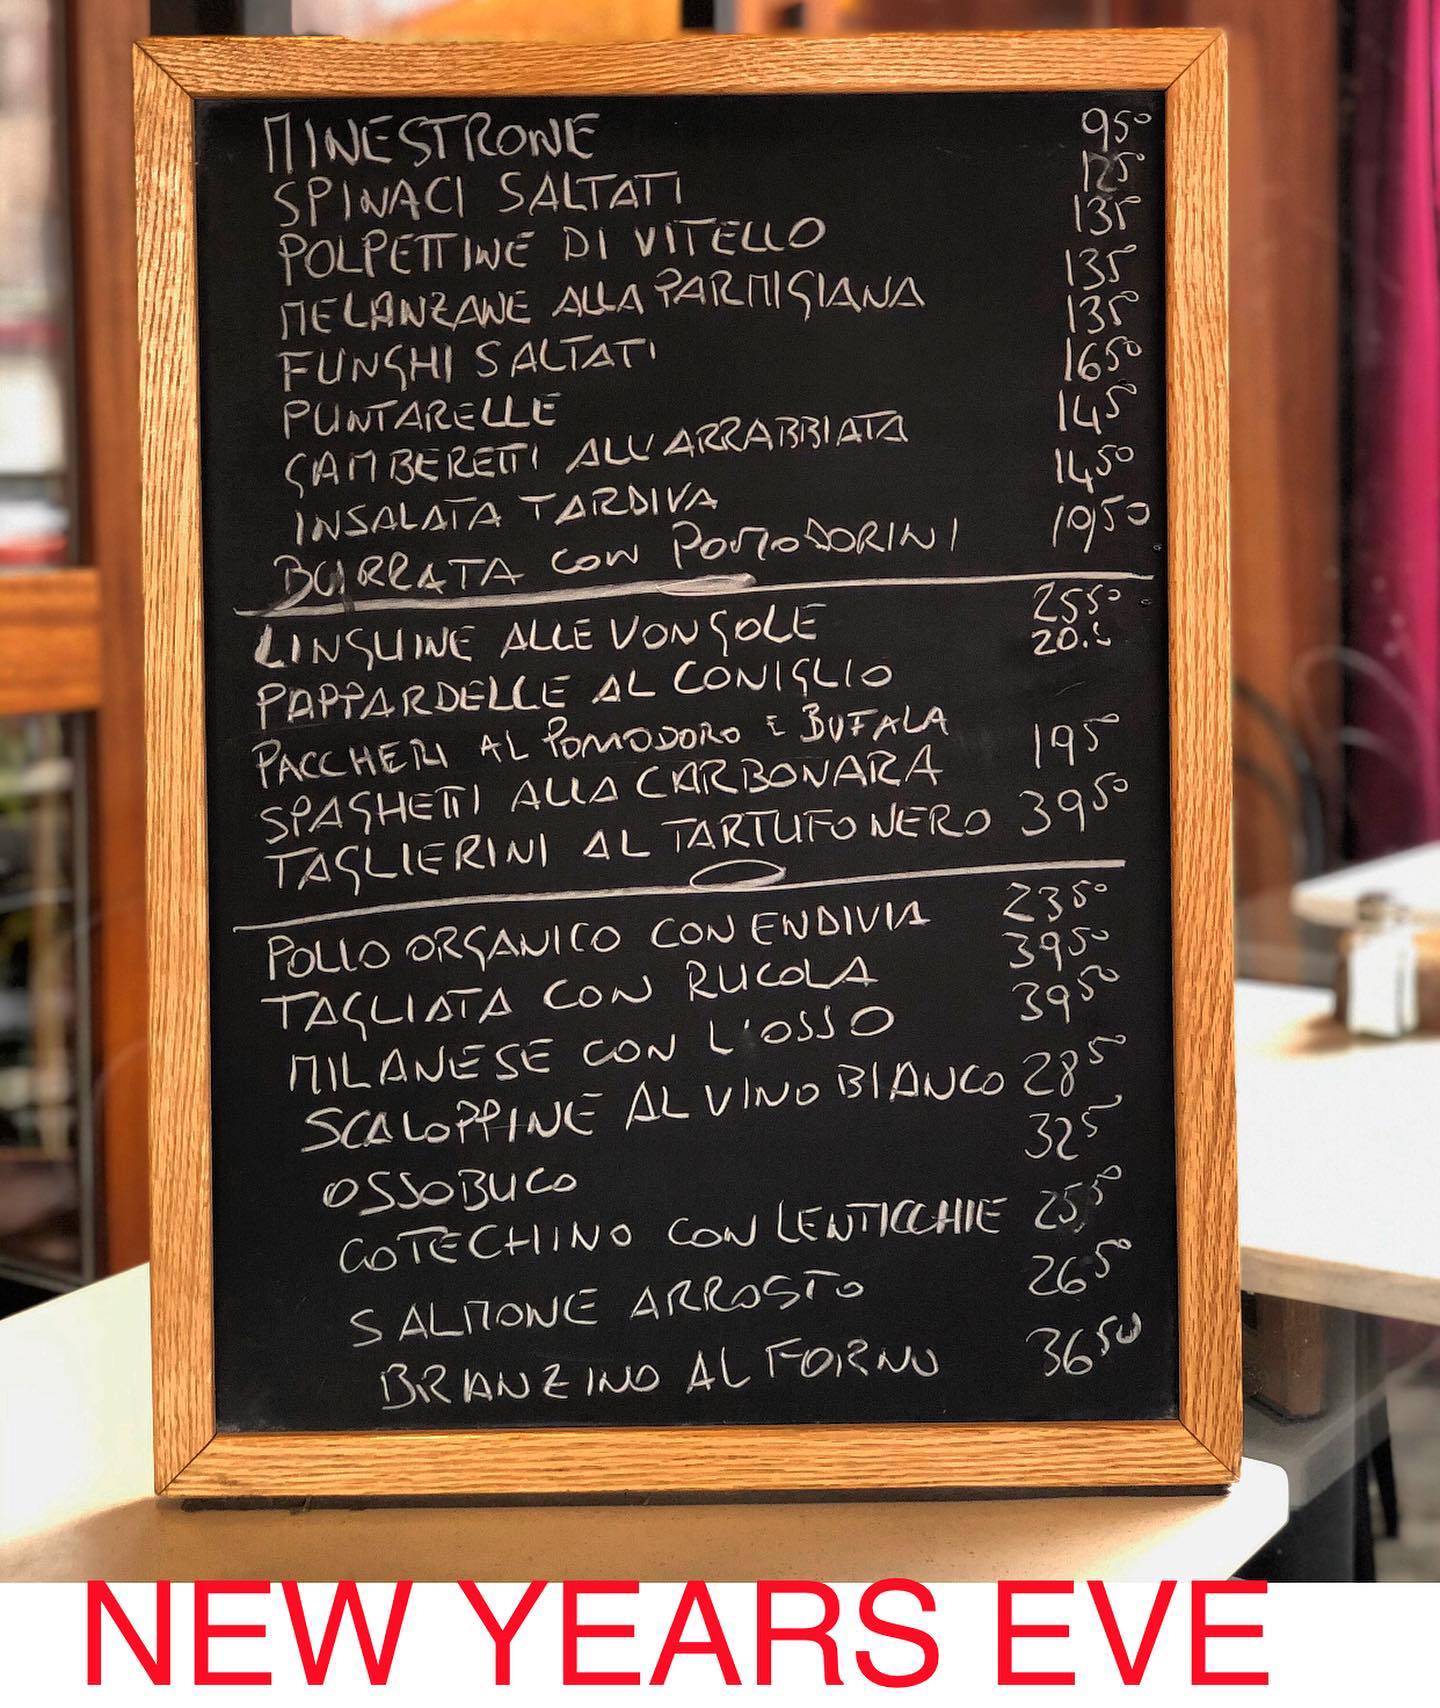 MINESTRONE 9 50
SPINACI SALTATI 12 5
POLPETTINE DI VITELLO 13 5
MELANZANE ALLA PARMIGIANA 13 5
FUNGHI SALTATI 13 5
PUNTARELLE 16 50
GAMBERETTI ALL'ARRABBIATA 14 5
INSALATA TARDIVA 14 50
BURRATA CON POMODORINI 19 50
LINGUINE ALLE VONGOLE 25 50
PAPPARDELLE AL CONIGLIO 20.5
PACCHERI AL POMODORO E BUFALA
SPAGHETTI ALLA CARBONARA 19 50
TAGLIERINI AL TARTUFO NERO 39 50
POLLO ORGANICO CON ENDIVIA 23 50
TAGLIATA CON RUCOLA 39 50
MILANESE CON L'OSSO 39 50
SCALOPPINE AL VINO BIANCO 28 50
OSSOBUCO 32 5
COTECHINO CON LENTICCHIE 25 50
SALMONE ARROSTO 26 50
BRANZINO AL FORNO 36 50
NEW YEARS EVE